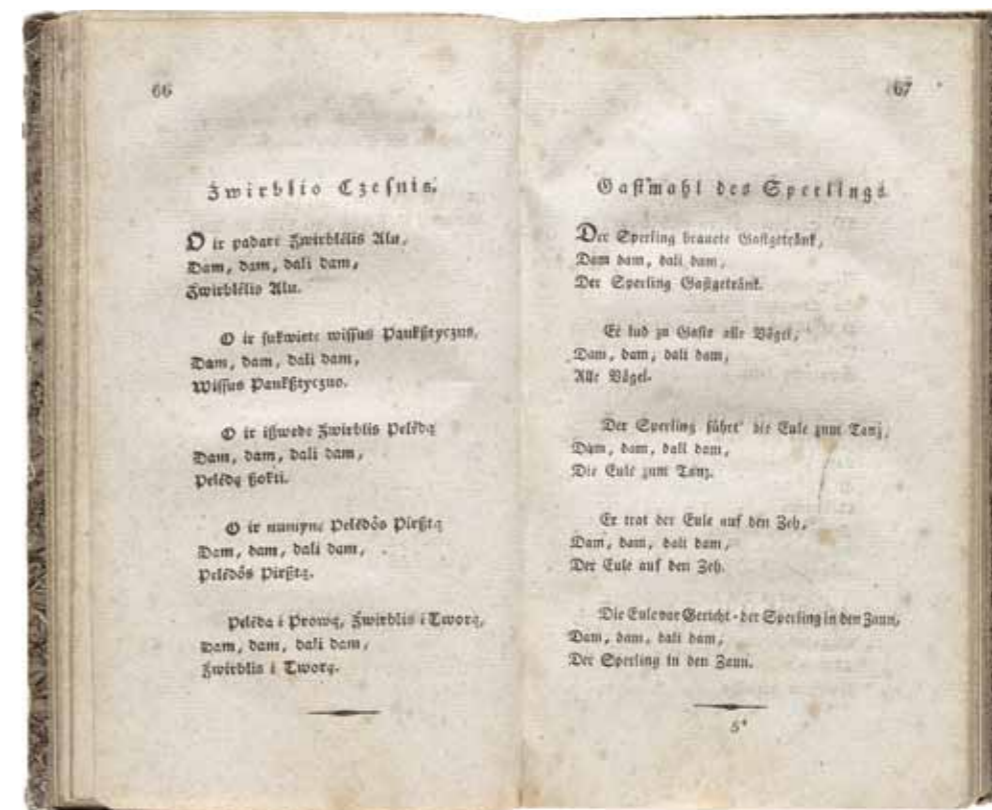 66
Żwirblio Czeſnis.
O ir padare Żwirblélis Alu,
Dam, dam, dali dam,
Żwirblélis Alu.
O ir ſukwiete wiſſus Paukßtyczus,
Dam, dam, dali dam,
Wiſſus Paukßtyczus.
O ir ißwede Żwirblis Pelédą
Dam, dam, dali dam,
Pelédą ßokti.
O ir numyne Pelédôs Pirßtą
Dam, dam, dali dam,
Pelédôs Pirßtą.
Peléda i Prową, Żwirblis i Tworą,
Dam, dam, dali dam,
Żwirblis i Tworą.
67
Gaſtmahl des Sperlings
Der Sperling brauete Gaſtgetränk,
Dam dam, dali dam,
Der Sperling Gaſtgetränk.
Er lud zu Gaſte alle Vögel,
Dam, dam, dali dam,
Alle Vögel.
Der Sperling führt' die Eule zum Tanz,
Dam, dam, dali dam,
Die Eule zum Tanz.
Er trat der Eule auf den Zeh,
Dam, dam, dali dam,
Der Eule auf den Zeh.
Die Eule vor Gericht - der Sperling in den Zaun,
Dam, dam, dali dam,
Der Sperling in den Zaun.
5*